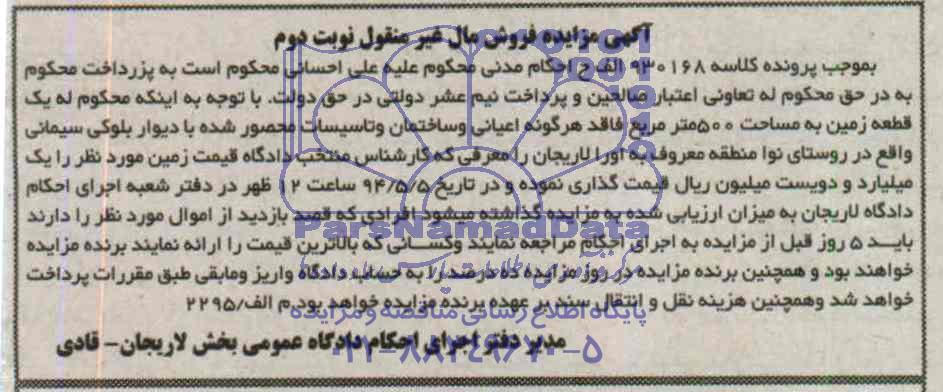 آگهی مزایده فروش مال غیر منقول نوبت دوم
بموجب پرونده کلاسه ۹۳۰۱۶۸ الف ح احکام مدنی محکوم علیه علی احسانی محکوم است به پزرداخت محکوم
به در حق محکوم له تعاونی اعتبار صالحین و پرداخت نیم عشر دولتی در حق دولت. با توجه به اینکه محکوم له یک
قطعه زمین به مساحت ۵۰۰متر مربع فاقد هرگونه اعیانی وساختمان وتاسیسات محصور شده با دیوار بلوکی سیمانی
واقع در روستای نوا منطقه معروف به اورا لاریجان را معرفی که کارشناس منتخب دادگاه قیمت زمین مورد نظر را یک
میلیارد و دویست میلیون ریال قیمت گذاری نموده و در تاریخ ۹۴/۵/۵ ساعت ۱۲ ظهر در دفتر شعبه اجرای احکام
دادگاه لاریجان به میزان ارزیابی شده به مزایده گذاشته میشود افرادی که قصد بازدید از اموال مورد نظر را دارند
بایــد ۵ روز قبل از مزایده به اجرای احکام مراجعه نمایند وکســانی که بالاترین قیمت را ارائه نمایند برنده مزایده
خواهند بود و همچنین برنده مزایده در روز مزایده ده درصد را به حساب دادگاه واریز ومابقی طبق مقررات پرداخت
خواهد شد وهمچنین هزینه نقل و انتقال سند بر عهده برنده مزایده خواهد بود.م الف/۲۲۹۵
مدیر دفتر اجرای احکام دادگاه عمومی بخش لاریجان- قادی
ParsNamadData
پایگاه اطلاع رسانی مناقصه و مزایده
۰۲۱-۸۸۳۴۹۶۷۰-۵